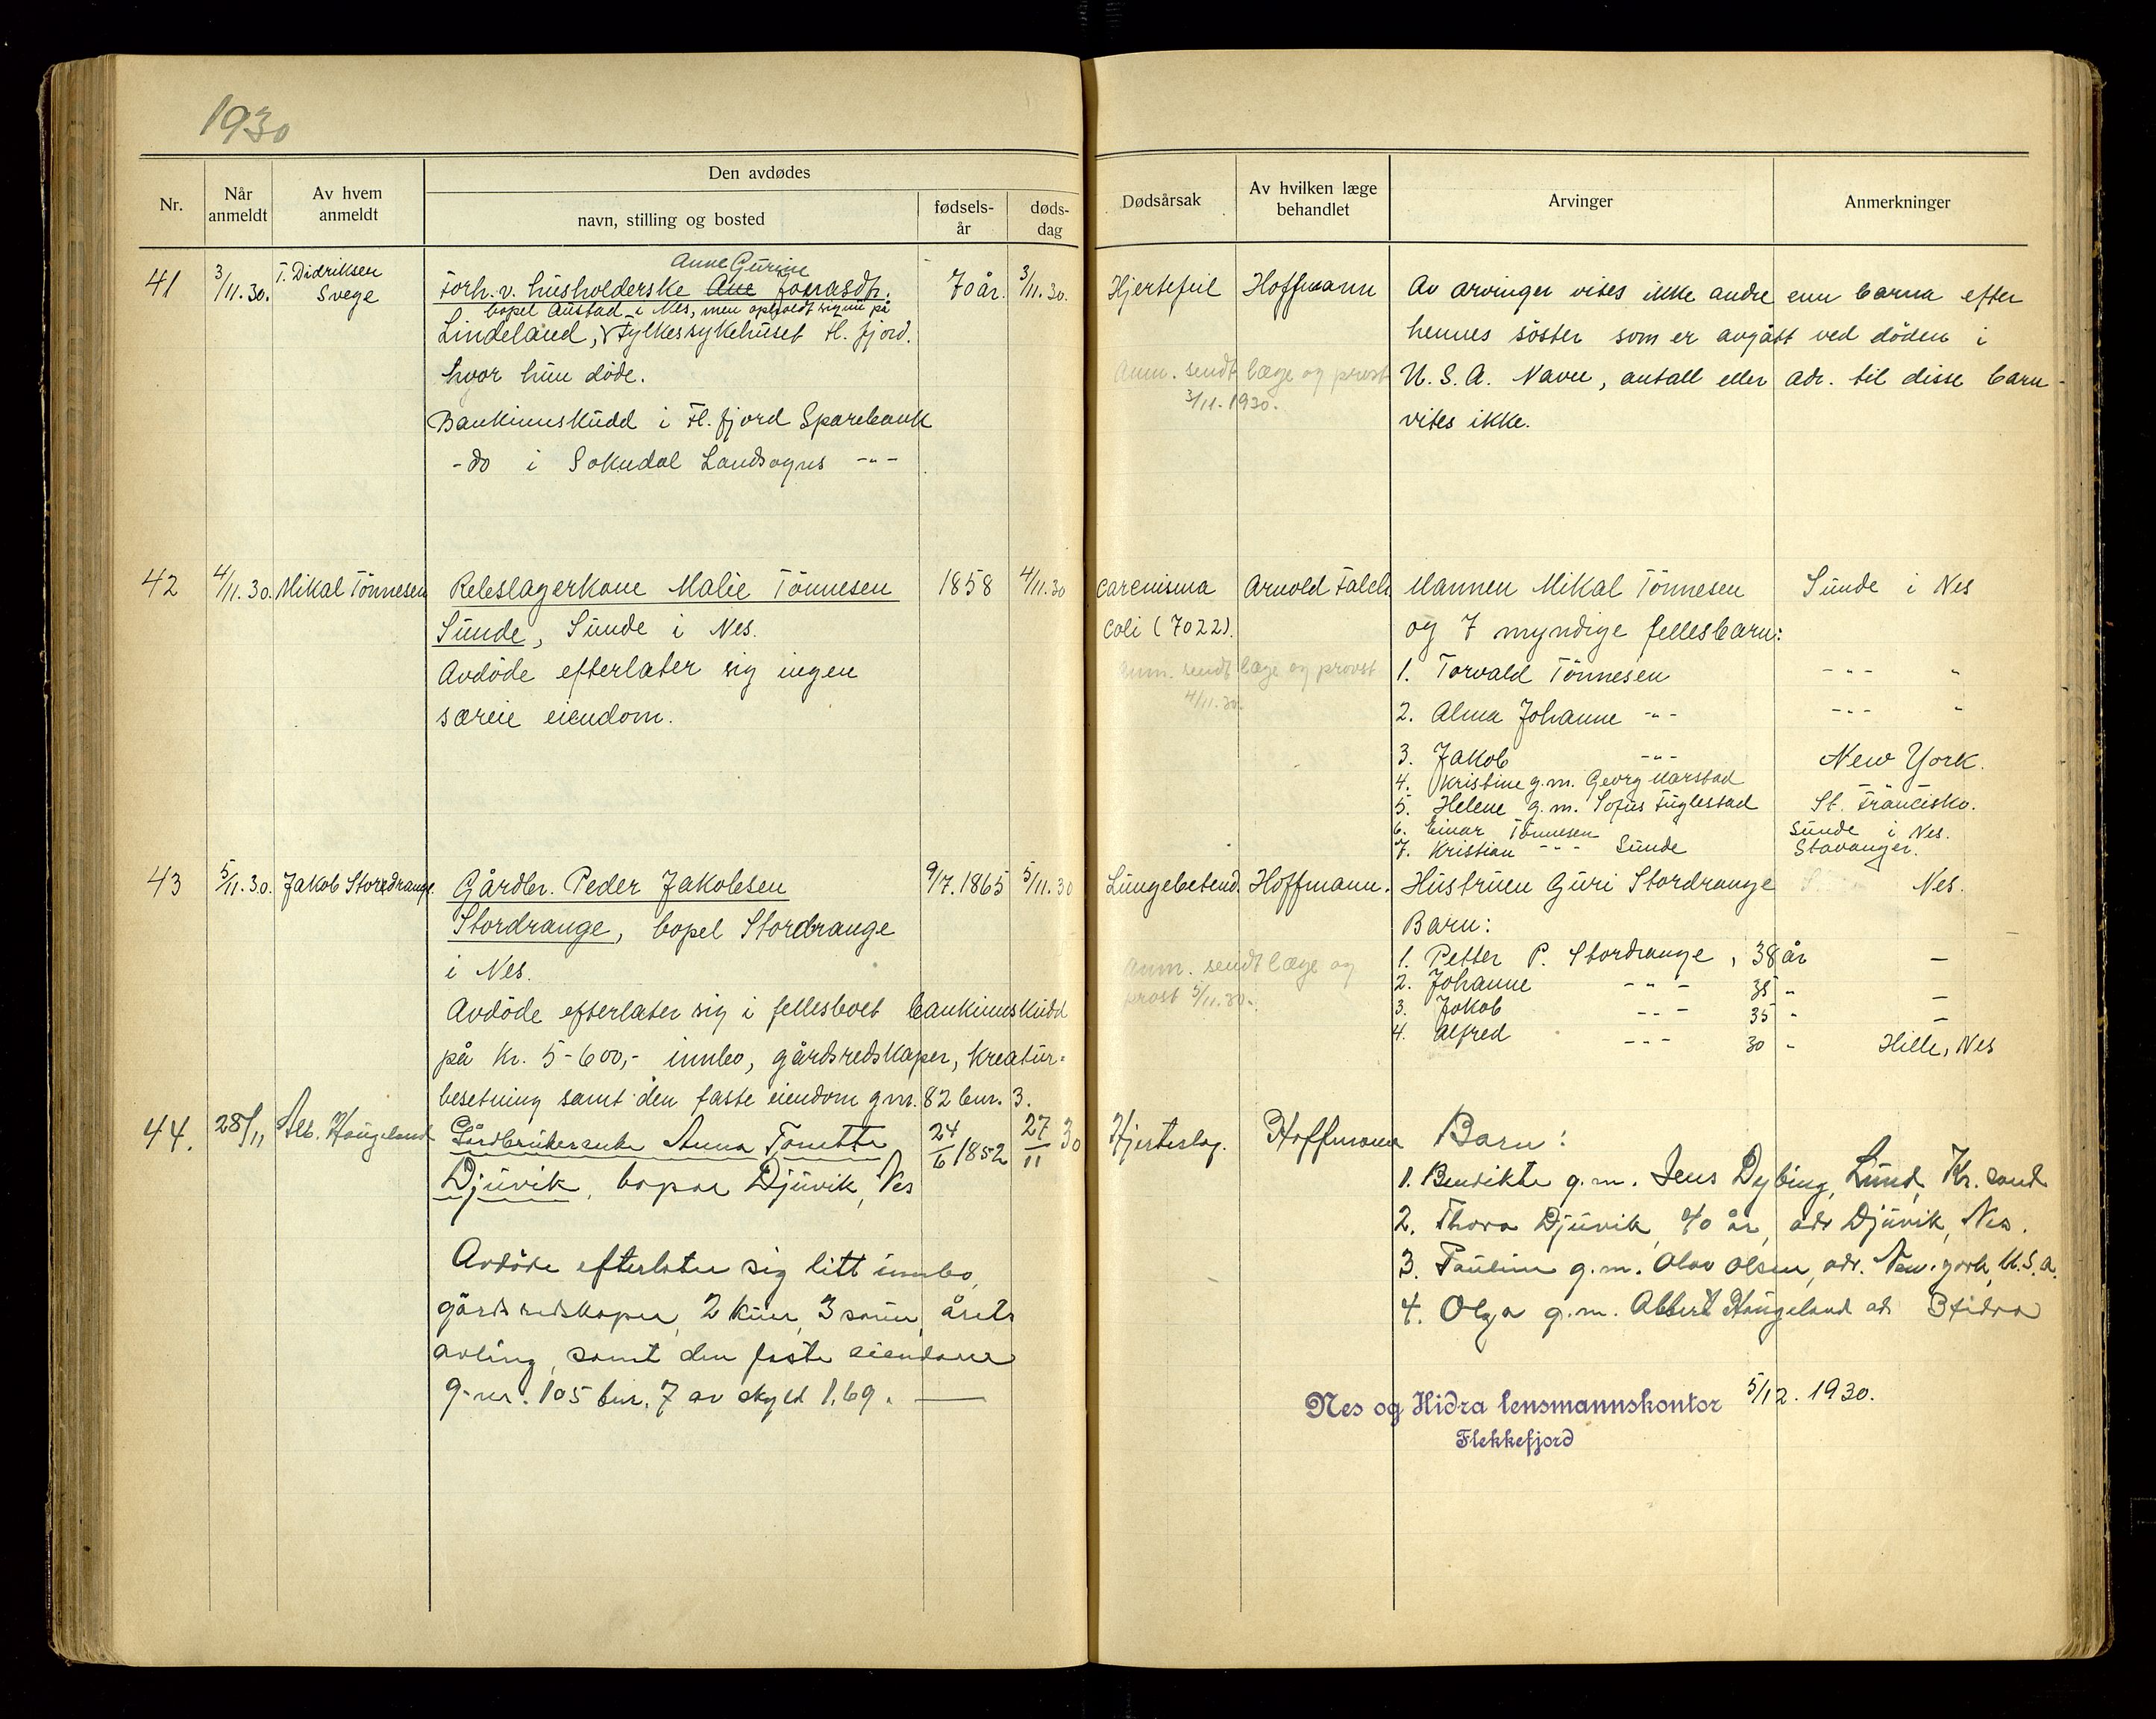 1930
Nr.
Når anmeldt
Av hvem anmeldt
Den avdødes
navn, stilling og bosted
fødsels-år
døds-dag
Dødsårsak
Av hvilken læge behandlet
Arvinger
Anmerkninger
41
3/11.30.
T. Didriksen
Svege
Anne Gurine
forh.v. husholderske Ane Jonasdtr.
bopel Austad i Nes, men opholdt sig nu på
Lindeland, v Fylkessykehuset Fl. fjord.
hvor hun døde.
Bankinnskudd i Fl. fjord Sparebank
-do i Sokndal Landsogns -"-
70 år.
3/11.30.
Hjertefeil
Hoffmann
Anm. sendt læge og prost
3/11.1930.
Av arvinger vites ikke andre enn barna efter
hennes søster som er avgått ved døden i
U.S.A. Navn, antall eller adr. til disse barn
vites ikke.
42
4/11.30.
Mikal Tönnesen
Rebslagerkone Malie Tönnesen
Sunde, Sunde i Nes.
Avdøde efterlater sig ingen
særeie eiendom.
1858
4/11.30
Carcnisma
coli (7022).
Arnold Falch
Anm. sendt læge og provst
4/11.30.
Mannen Mikal Tönnesen Sunde i Nes
og 7 myndige fellesbarn:
1. Torvald Tönnesen -"- "
2. Alma Johanne -"- -"- "
3. Jakob -"- New York.
4. Kristine g.m. Georg Marstad
5. Helene g.m. Sofus Fuglestad St. Francisko.
6. Einar Tönnesen Sunde i Nes.
7. Kristian -"- Sunde Stavanger.
43
5/11.30.
Jakob Stordrange
Gårdbr. Peder Jakobsen
Stordrange, bopel Stordrange
i Nes.
Avdøde efterlater sig i fellesboet bankinnskudd
på kr. 5-600,- innbo, gårdsredskaper, kreatur-
besetning samt den faste eiendom gnr. 82 bnr. 3.
9/7.1865
5/11.30
Lungebetend.
Hoffmann.
Anm. sendt læge og
prost 5/11.30.
Hustruen Guri Stordrange Nes.
Barn:
1. Petter P. Stordrange, 38 år —
2. Johanne -"- 38 "
3. Jakob -"- 35 " —
4. Alfred -"- 30 " Hille, Nes
44.
28/11
Alb. Haugeland
Gårdbrukerenke Anna Tonette
Djuvik, bopæl Djuvik, Nes
Avdøde efterlater sig litt innbo,
gårdsredskaper, 2 kuer, 3 sauer, årets
avling, samt den faste eiendom
g-nr. 105 bnr. 7 av skyld 1,69. —
24/6 1852
27/11 30
Hjerteslag.
Hoffmann
Barn:
1. Bendikte g.m. Jens Dybing, Lund, Kr. sand
2. Thora Djuvik, 40 år, adr Djuvik, Nes.
3. Pauline g.m. Olav Olsen, adr. New-york, U.S.A.
4. Olga g.m. Albert Haugeland adr Hidra
Nes og Hidra lensmannskontor 5/12.1930.
Flekkefjord